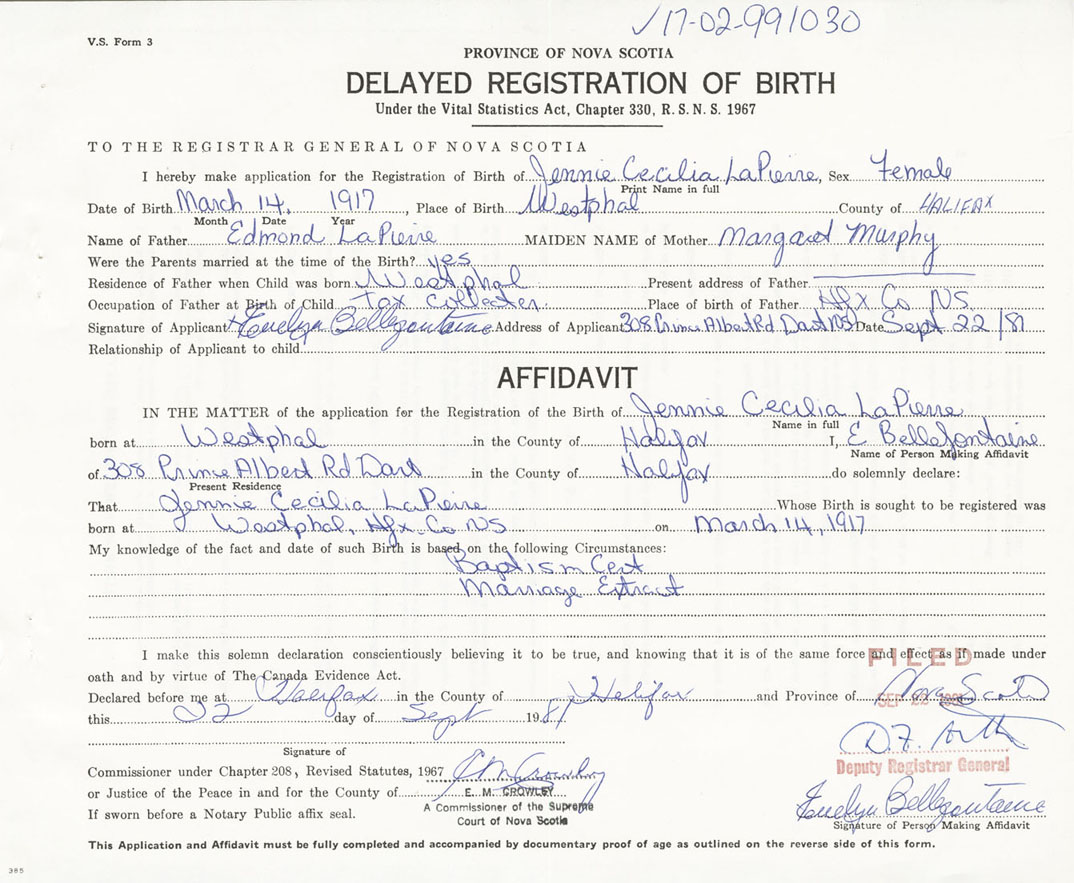 ✓17-02-991030
V.S. Form 3
PROVINCE OF NOVA SCOTIA
DELAYED REGISTRATION OF BIRTH
Under the Vital Statistics Act, Chapter 330, R. S. N. S. 1967
TO THE REGISTRAR GENERAL OF NOVA SCOTIA
I hereby make application for the Registration of Birth of Jennie Cecilia LaPierre, Sex Female
Print Name in full
Date of Birth March 14, 1917, Place of Birth Westphal County of HALIFAX
Month Date Year
Name of Father Edmond LaPierre MAIDEN NAME of Mother Margaret Murphy
Were the Parents married at the time of the Birth? yes
Residence of Father when Child was born Westphal Present address of Father
Occupation of Father at Birth of Child tax collecter Place of birth of Father Hfx Co NS
Signature of Applicant x Evelyn Bellefontaine Address of Applicant 308 Prince Albert Rd Dart NS Date Sept 22/81
Relationship of Applicant to child
AFFIDAVIT
IN THE MATTER of the application for the Registration of the Birth of Jennie Cecilia LaPierre
Name in full
born at Westphal in the County of Halifax I, E Bellefontaine
Name of Person Making Affidavit
of 308 Prince Albert Rd Dart in the County of Halifax do solemnly declare:
Present Residence
That Jennie Cecilia LaPierre Whose Birth is sought to be registered was
born at Westphal, Hfx. Co NS on March 14, 1917
My knowledge of the fact and date of such Birth is based on the following Circumstances:
Baptism Cert
Marriage Extract
I make this solemn declaration conscientiously believing it to be true, and knowing that it is of the same force and effect as if made under
FILED
oath and by virtue of The Canada Evidence Act.
Declared before me at Halifax in the County of Halifax and Province of Nova Scotia
SEP 22 1981
this 22 day of Sept 1981
Signature of
Commissioner under Chapter 208, Revised Statutes, 1967 E M Crowley
Deputy Registrar General
or Justice of the Peace in and for the County of E. M. CROWLEY
If sworn before a Notary Public affix seal.
A Commissioner of the Supreme
Court of Nova Scotia
Evelyn Bellefontaine
Signature of Person Making Affidavit
This Application and Affidavit must be fully completed and accompanied by documentary proof of age as outlined on the reverse side of this form.
385